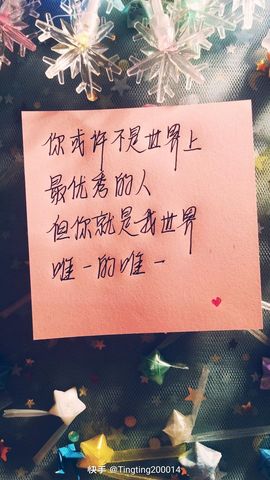 你或许不是世界上
最优秀的人
但你就是我世界
唯一的唯一
快手 @Tingting200014